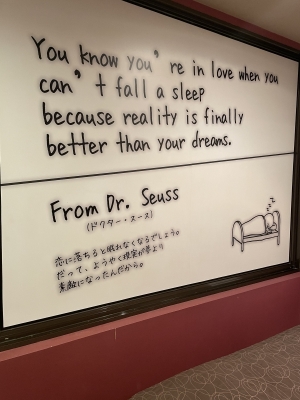 You know you're in love when you
can't fall a sleep
because reality is finally
better than your dreams.
From Dr. Seuss
(ドクター・スース)
恋に落ちると眠れなくなるでしょう。
だって、ようやく現実が夢より
素敵になったんだから。
zzz